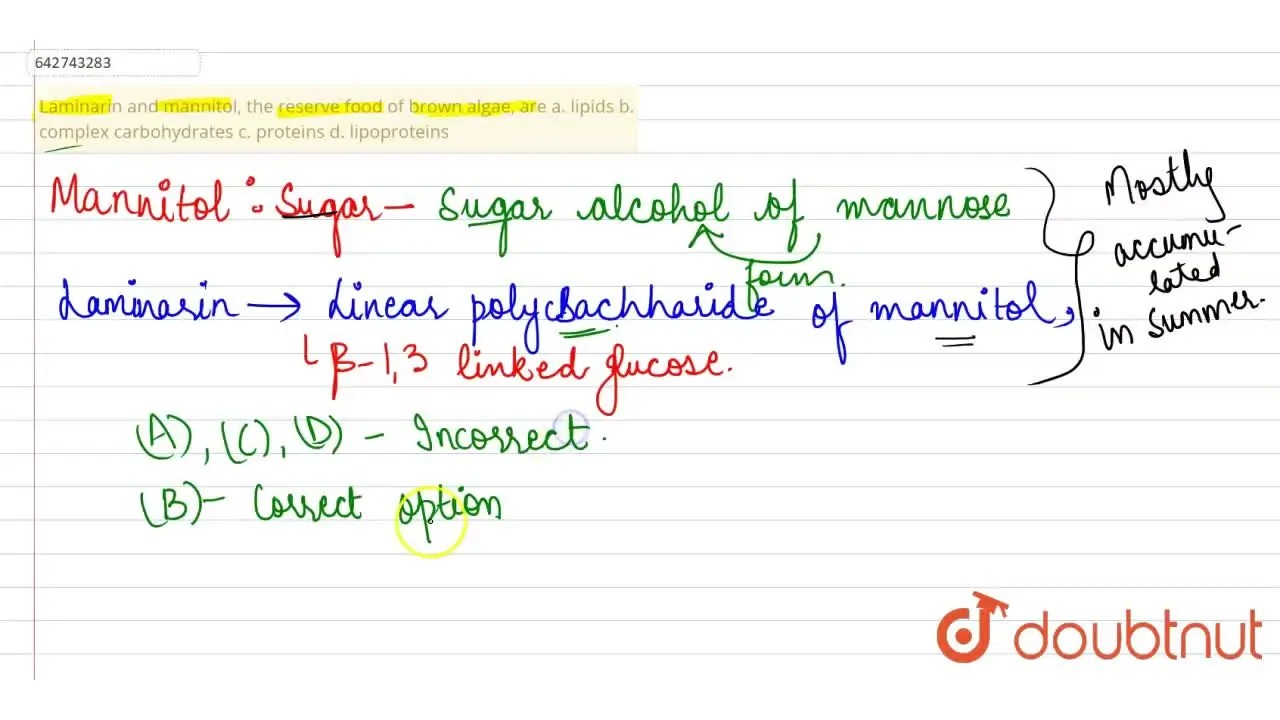 642743283
Laminarin and mannitol, the reserve food of brown algae, are a. lipids b.
complex carbohydrates c. proteins d. lipoproteins
Mannitol : Sugar - Sugar alcohol of mannose
form.
Laminarin → Linear polysachharide of mannitol,
β-1,3 linked glucose.
Mostly
accumu-
lated
in summer.
(A), (C), (D) - Incorrect.
(B) - Correct option
doubtnut